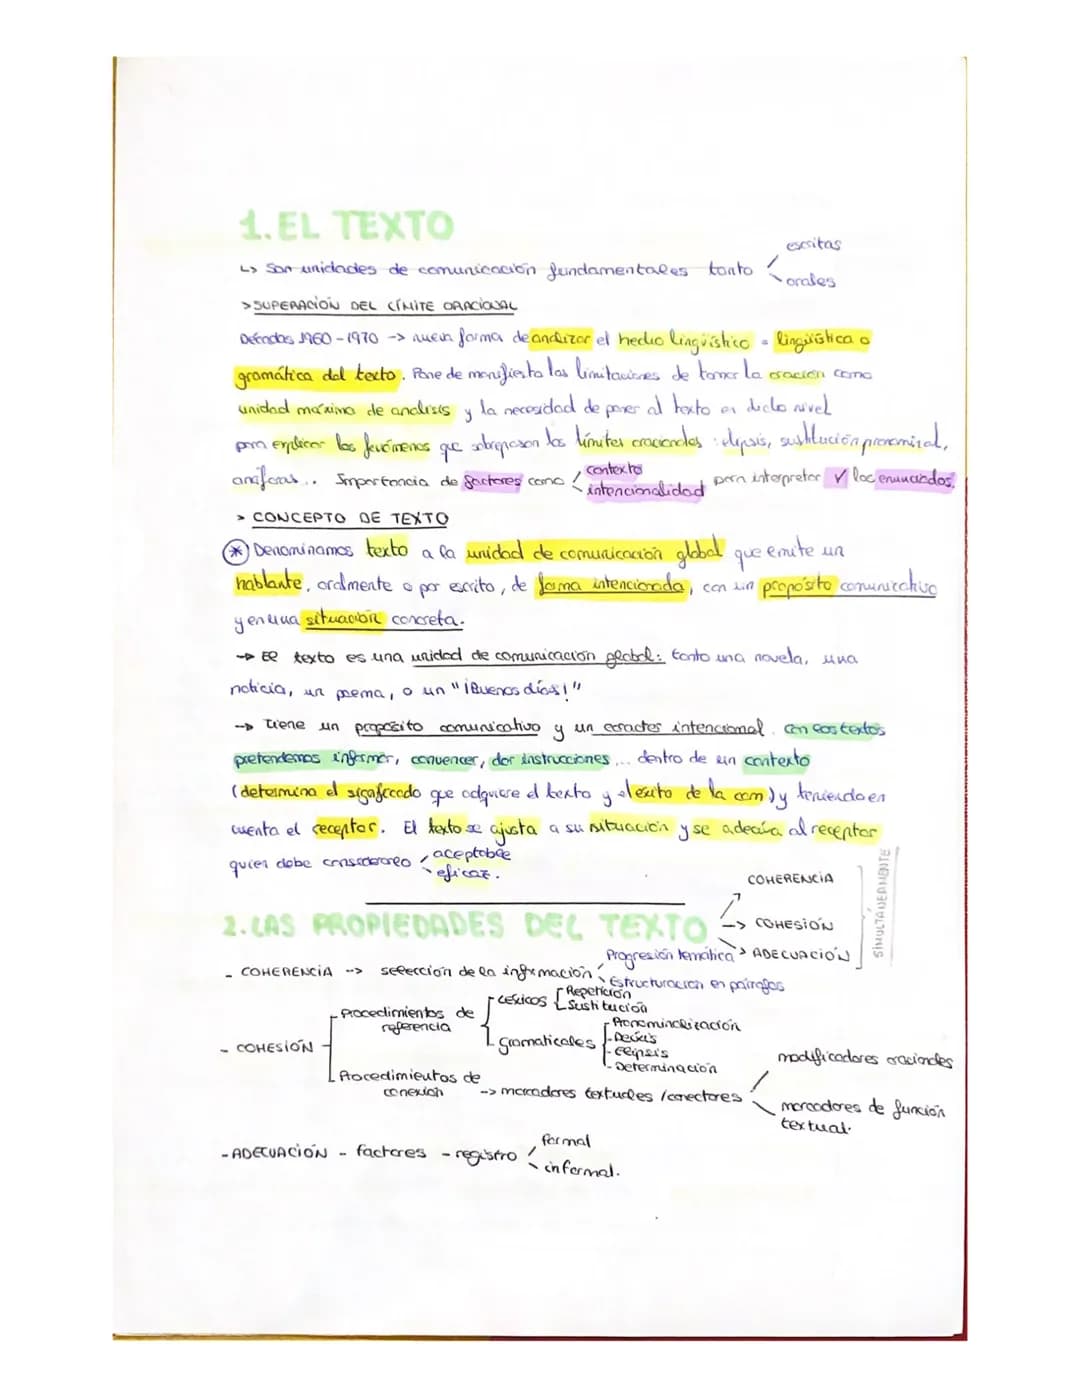 1. EL TEXTO
↳ Son unidades de comunicación fundamentales tanto escritas
orales
> SUPERACIÓN DEL LÍMITE ORACIONAL
Décadas 1960-1970 -> nueva forma de analizar el hecho lingüístico = lingüística o
gramática del texto. Pone de manifiesto las limitaciones de tomar la oración como
unidad máxima de analisis y la necesidad de poner al texto en dicho nivel
para explicar los fenómenos que sobrepasan los límites oracionales : elipsis, sustitución pronominal,
anáforas... Importancia de factores como contexto
intencionalidad para interpretar ✓ los enunciados.
> CONCEPTO DE TEXTO
* Denominamos texto a la unidad de comunicación global que emite un
hablante, oralmente o por escrito, de forma intencionada, con un propósito comunicativo
y en una situación concreta.
-> El texto es una unidad de comunicación global: tanto una novela, una
noticia, un poema, o un "¡Buenos días!"
--> Tiene un proposito comunicativo y un caracter intencional. Con los textos
pretendemos informar, convencer, dar instrucciones... dentro de un contexto
(determina el significado que adquiere el texto y el exito de la com) y teniendo en
cuenta el receptor. El texto se ajusta a su situación y se adecúa al receptor
quien debe considerarlo aceptable
eficaz.
2. LAS PROPIEDADES DEL TEXTO
COHERENCIA
-> COHESIÓN
> ADECUACIÓN
SIMULTÁNEAMENTE
- COHERENCIA --> selección de la información Progresión temática
Estructuración en párrafos
- COHESIÓN
Procedimientos de
referencia
Léxicos Repetición
Sustitución
gramaticales - Pronominalización
- Deixis
- Elipsis
- Determinación
Procedimientos de
conexión -> marcadores textuales / conectores
modificadores oracionales
marcadores de función
textual.
- ADECUACIÓN - factores - registro formal
informal.